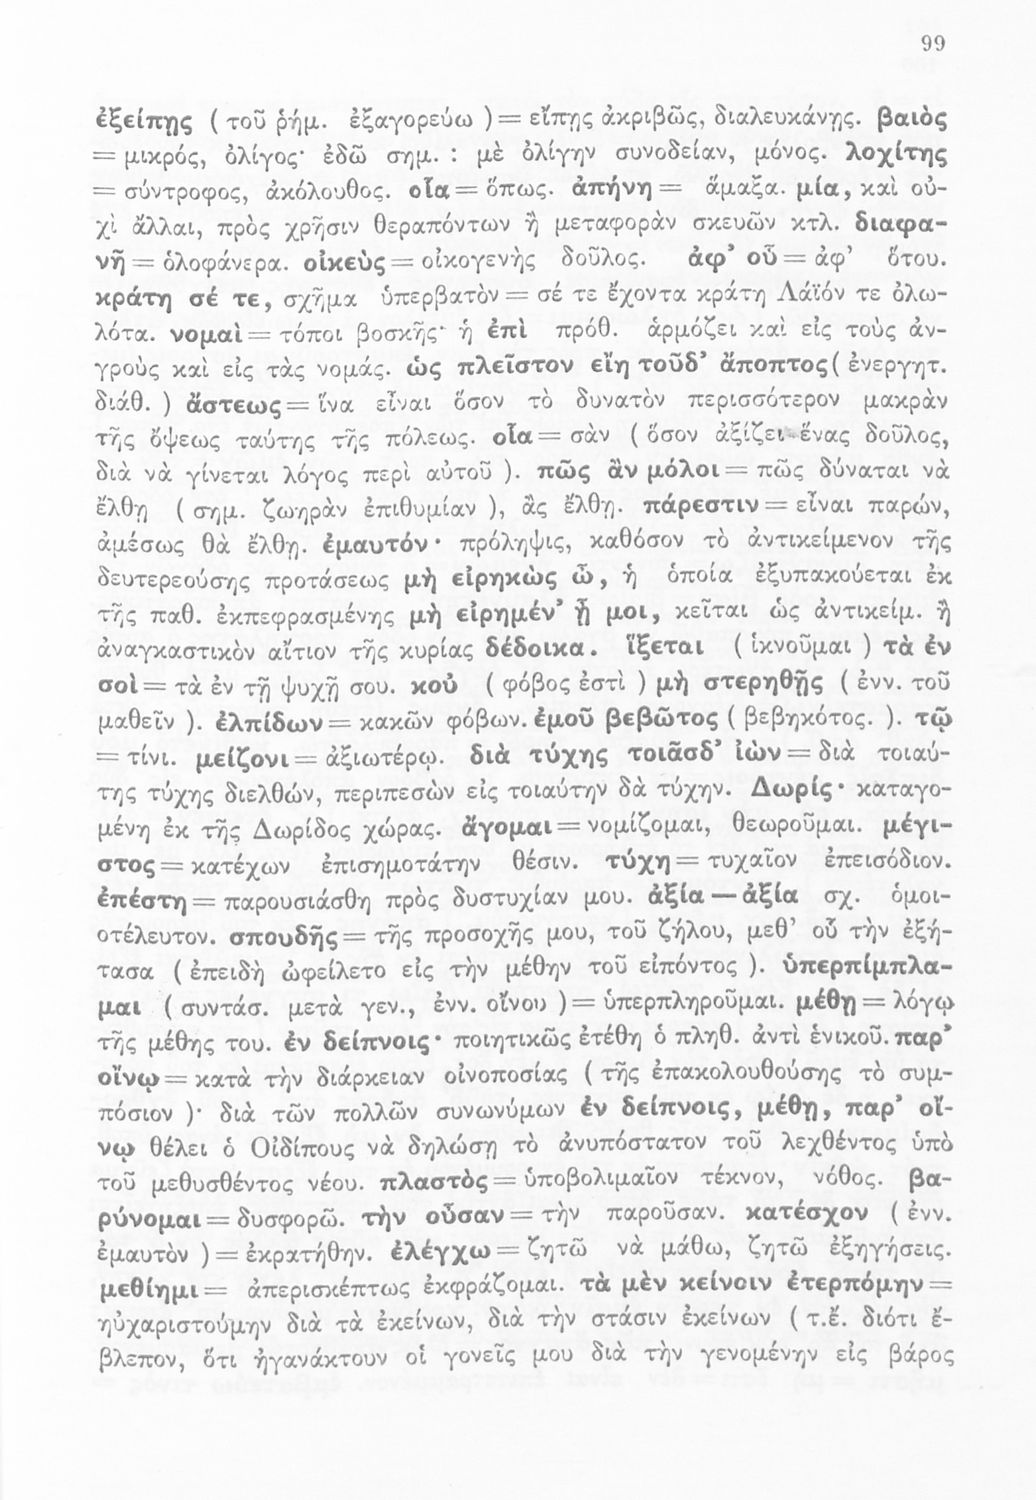 99
ἐξείπῃς ( τοῦ ῥήμ. ἐξαγορεύω ) = εἴπῃς ἀκριβῶς, διαλευκάνῃς. βαιὸς
= μικρός, ὀλίγος· ἐδῶ σημ. : μὲ ὀλίγην συνοδείαν, μόνος. λοχίτης
= σύντροφος, ἀκόλουθος. οἷα = ὅπως. ἀπήνη = ἅμαξα. μία, καὶ οὐ-
χὶ ἄλλαι, πρὸς χρῆσιν θεραπόντων ἢ μεταφορὰν σκευῶν κτλ. διαφα-
νῆ = ὁλοφάνερα. οἰκεὺς = οἰκογενὴς δοῦλος. ἀφ’ οὗ = ἀφ’ ὅτου.
κράτη σέ τε, σχῆμα ὑπερβατὸν = σέ τε ἔχοντα κράτη Λάϊόν τε ὀλω-
λότα. νομαὶ = τόποι βοσκῆς· ἡ ἐπὶ πρόθ. ἁρμόζει καὶ εἰς τοὺς ἀν-
γροὺς καὶ εἰς τὰς νομάς. ὡς πλεῖστον εἴη τοῦδ’ ἄποπτος ( ἐνεργητ.
διάθ. ) ἄστεως = ἵνα εἶναι ὅσον τὸ δυνατὸν περισσότερον μακρὰν
τῆς ὄψεως ταύτης τῆς πόλεως. οἷα = σὰν ( ὅσον ἀξίζει ἕνας δοῦλος,
διὰ νὰ γίνεται λόγος περὶ αὐτοῦ ). πῶς ἂν μόλοι = πῶς δύναται νὰ
ἔλθῃ ( σημ. ζωηρὰν ἐπιθυμίαν ), ἂς ἔλθῃ. πάρεστιν = εἶναι παρών,
ἀμέσως θὰ ἔλθῃ. ἐμαυτόν· πρόληψις, καθόσον τὸ ἀντικείμενον τῆς
δευτερεούσης προτάσεως μὴ εἰρηκὼς ὦ, ἡ ὁποία ἐξυπακούεται ἐκ
τῆς παθ. ἐκπεφρασμένης μὴ εἰρημέν’ ᾖ μοι, κεῖται ὡς ἀντικείμ. ἢ
ἀναγκαστικὸν αἴτιον τῆς κυρίας δέδοικα. ἵξεται ( ἱκνοῦμαι ) τὰ ἐν
σοὶ = τὰ ἐν τῇ ψυχῇ σου. κοὐ ( φόβος ἐστὶ ) μὴ στερηθῇς ( ἐνν. τοῦ
μαθεῖν ). ἐλπίδων = κακῶν φόβων. ἐμοῦ βεβῶτος ( βεβηκότος. ). τῷ
= τίνι. μείζονι = ἀξιωτέρῳ. διὰ τύχης τοιᾶσδ’ ἰὼν = διὰ τοιαύ-
της τύχης διελθών, περιπεσὼν εἰς τοιαύτην δὰ τύχην. Δωρίς· καταγο-
μένη ἐκ τῆς Δωρίδος χώρας. ἄγομαι = νομίζομαι, θεωροῦμαι. μέγι-
στος = κατέχων ἐπισημοτάτην θέσιν. τύχη = τυχαῖον ἐπεισόδιον.
ἐπέστη = παρουσιάσθη πρὸς δυστυχίαν μου. ἀξία — ἀξία σχ. ὁμοι-
οτέλευτον. σπουδῆς = τῆς προσοχῆς μου, τοῦ ζήλου, μεθ’ οὗ τὴν ἐξή-
τασα ( ἐπειδὴ ὠφείλετο εἰς τὴν μέθην τοῦ εἰπόντος ). ὑπερπίμπλα-
μαι ( συντάσ. μετὰ γεν., ἐνν. οἴνου ) = ὑπερπληροῦμαι. μέθῃ = λόγῳ
τῆς μέθης του. ἐν δείπνοις· ποιητικῶς ἐτέθη ὁ πληθ. ἀντὶ ἑνικοῦ. παρ’
οἴνῳ = κατὰ τὴν διάρκειαν οἰνοποσίας ( τῆς ἐπακολουθούσης τὸ συμ-
πόσιον )· διὰ τῶν πολλῶν συνωνύμων ἐν δείπνοις, μέθῃ, παρ’ οἴ-
νῳ θέλει ὁ Οἰδίπους νὰ δηλώσῃ τὸ ἀνυπόστατον τοῦ λεχθέντος ὑπὸ
τοῦ μεθυσθέντος νέου. πλαστὸς = ὑποβολιμαῖον τέκνον, νόθος. βα-
ρύνομαι = δυσφορῶ. τὴν οὖσαν = τὴν παροῦσαν. κατέσχον ( ἐνν.
ἐμαυτὸν ) = ἐκρατήθην. ἐλέγχω = ζητῶ νὰ μάθω, ζητῶ ἐξηγήσεις.
μεθίημι = ἀπερισκέπτως ἐκφράζομαι. τὰ μὲν κείνοιν ἐτερπόμην =
ηὐχαριστούμην διὰ τὰ ἐκείνων, διὰ τὴν στάσιν ἐκείνων ( τ.ἔ. διότι ἔ-
βλεπον, ὅτι ἠγανάκτουν οἱ γονεῖς μου διὰ τὴν γενομένην εἰς βάρος